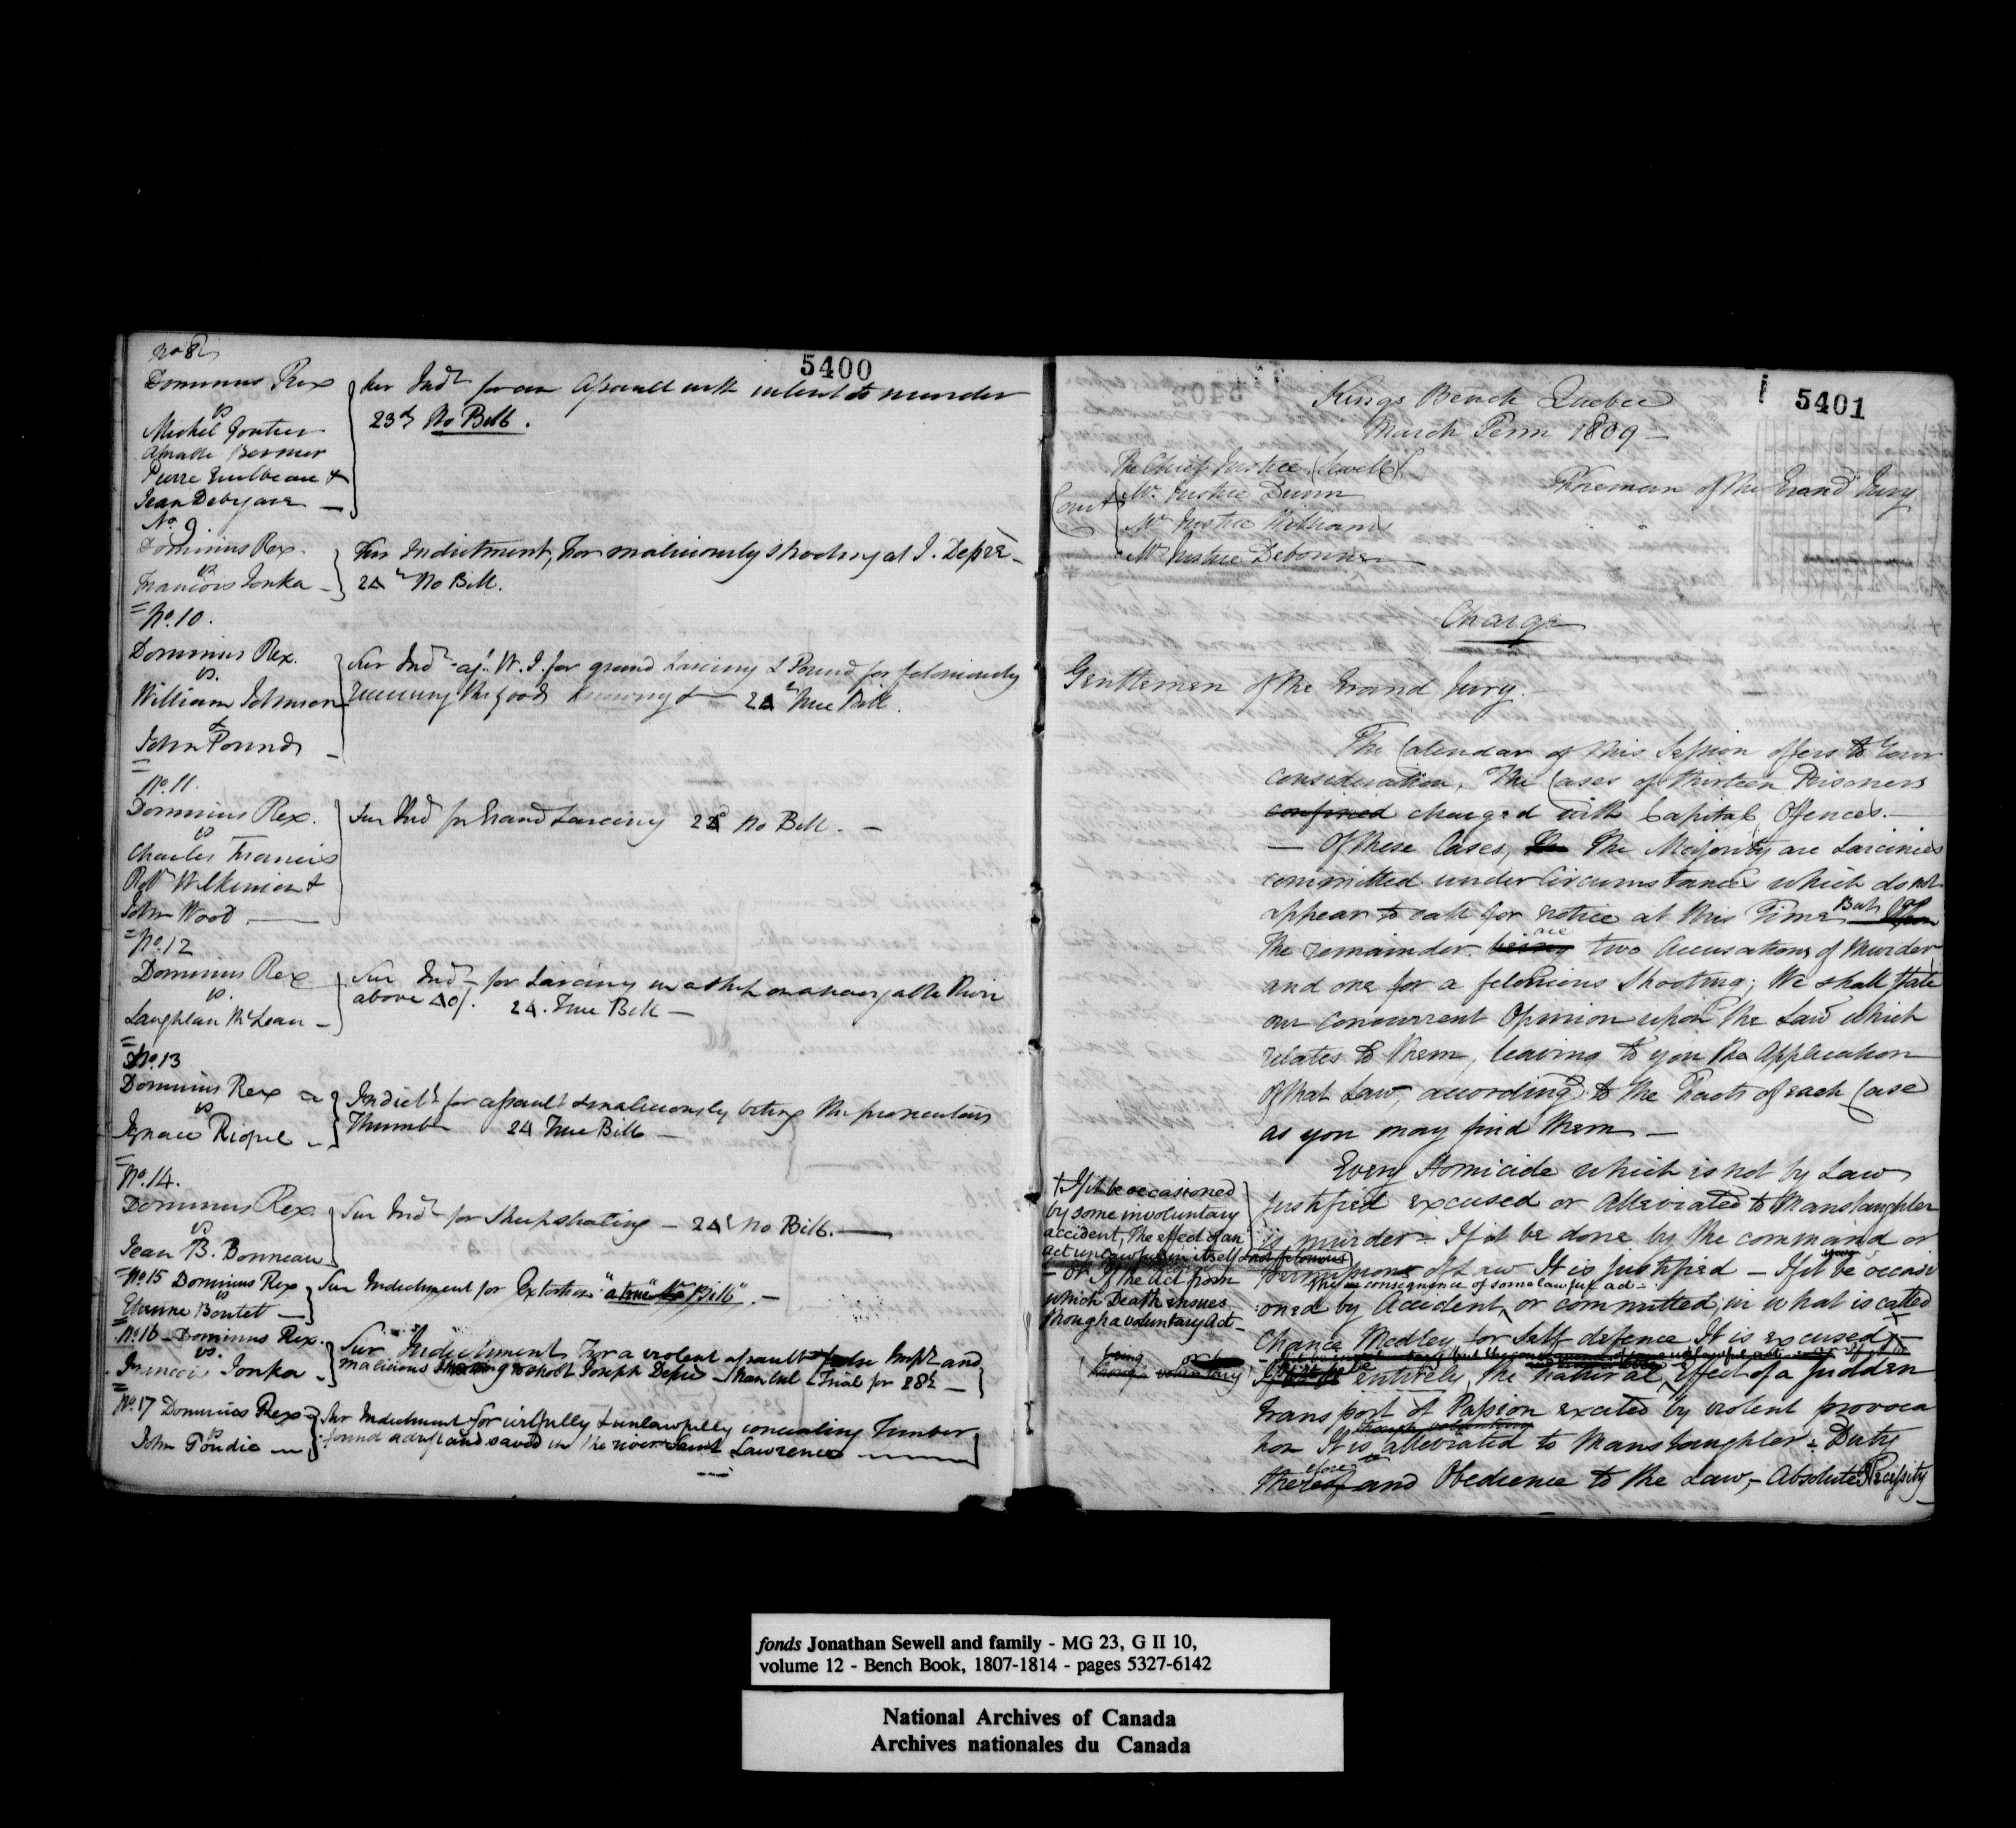 5400
No 8
Dominus Rex
vs
Michel Gontier
Amable Bernier
Pierre Guilbeau &
Jean Debejare
Sur Indt for an Assault with intent to murder
23d No Bill.
No. 9.
Dominus Rex.
vs
Francois Tonka
Sur Indictment, For maliciously shooting at J. Depeé
24 No Bill.
No. 10.
Dominus Rex.
vs.
William Johnson
&
John Pound
Sur Indt agt W. J. for grand Larceny & Pound for feloniously
receiving the goods knowing &c 24 True Bill.
No. 11.
Dominus Rex.
vs
Charles Francis
Robt Wilkinson &
John Wood
Sur Indt for Grand Larceny 24 No Bill. —
No. 12
Dominus Rex
vs.
Laughlan McLean
Sur Indt for Larceny in a Ship on a navigable River
above 40/. 24. True Bill —
No. 13
Dominus Rex
vs
Ignace Riopel
Indictt for assault & maliciously biting the prosecutors
Thumb 24 True Bill —
No. 14.
Dominus Rex.
vs
Jean B. Bonneau
Sur Indt for Sheepstealing — 24 No Bill. —
No 15 Dominus Rex
vs
Etienne Boutet
Sur Indictment for Extortion "a true Bill". —
No. 16 — Dominus Rex.
vs.
Francois Tonka
Sur Indictment For a violent assault false Imprt and
malicious to shoot Joseph Depeé — Trial for 28th —
No. 17 Dominus Rex
vs
John Goudie
Sur Indictment for wilfully & unlawfully concealing Timber
found adrift and saved in the river Saint Lawrence
5401
Kings Bench Quebec
March Term 1809 —
Court
The Chief Justice (Sewell)
Mr. Justice Dunn
Mr Justice Williams
Mr Justice Debonne
Foreman of the Grand Jury
Charge
Gentlemen of the Grand Jury. —
The Calendar of this Session offers to Your
consideration, The Cases of thirteen Prisoners
confined charged with Capital Offences. —
— Of these Cases, The Majority are Larcinies
committed under Circumstances which do not
appear to call for notice at this Time But Of
the remainder being are two Accusations of Murder
and one for a felonious Shooting; We shall state
our concurrent Opinion upon the Law which
relates to them, leaving to you the Application
of that Law, according to the Facts of each Case
as you may find them —
Every Homicide which is not by Law
justified excused or alleviated to Manslaughter
is murder — If it be done by the command or
permission of Law It is justified — If it be occasi
the consequence of some lawful act —
oned by Accident, or committed, in what is called
Chance Medley or Self defence It is excused —
entirely, the natural effect of a sudden
transport of Passion excited by violent provoca
tion It is alleviated to Manslaughter — Duty
therefore and Obedience to the Law, — Absolute Necessity
+ If it be occasioned
by some involuntary
accident, The effect of an
act unlawful in itself not felonious
— or If the Act from
which Death ensues
though a voluntary Act —
being
though voluntary
fonds Jonathan Sewell and family - MG 23, G II 10,
volume 12 - Bench Book, 1807-1814 - pages 5327-6142
National Archives of Canada
Archives nationales du Canada